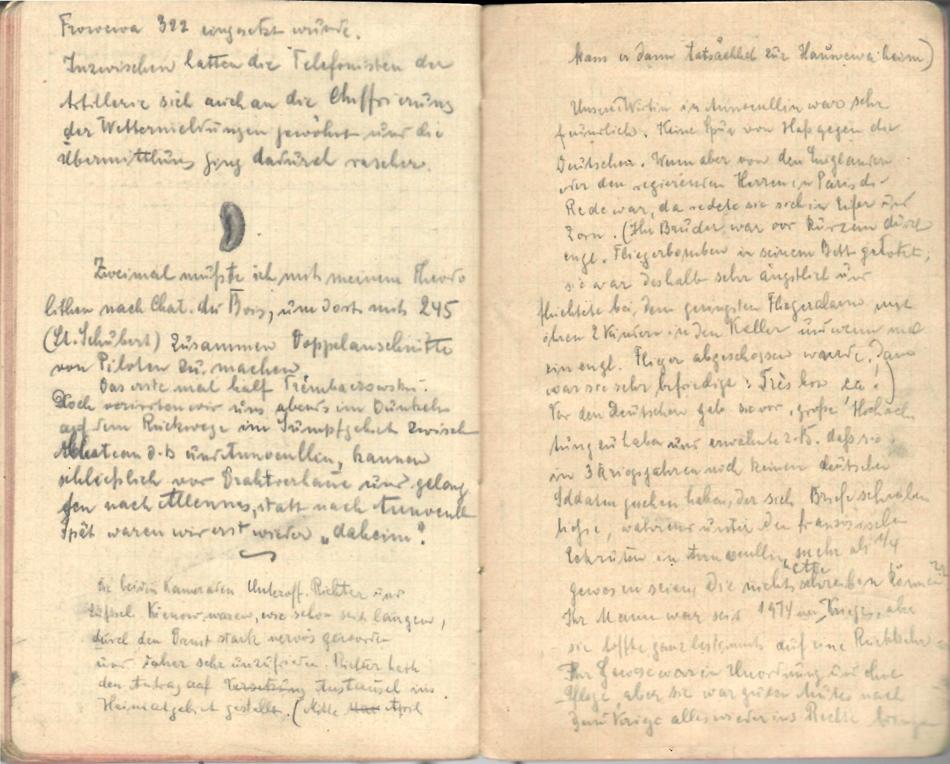 Frowewa 322 eingesetzt wurde.
Inzwischen hatten die Telefonisten der
Artillerie sich auch an die Chiffrierung
der Wettermeldungen gewöhnt und die
Übermittlung ging dadurch rascher.
Zweimal mußte ich mit meinem Theodo
lithen nach Chat. du Bois, um dort mit 245
(Lt. Schubert) zusammen Doppelanschnitte
von Piloten zu machen
Das erste mal half
Doch verirrten wir uns abends im Dunkeln
auf dem Rückwege im Sumpfgebiet zwisch
Chateau d. B und Annoeullin, kamen
schließlich vor Drahtverhaue und gelang
ten nach Allennes, statt nach Annoeull
Spät waren wir erst wieder „daheim".
Die beiden Kameraden Unteroff. Richter und
Kienow waren, wie schon seit langem,
durch den Dienst stark nervös geworden
und daher sehr unzufrieden. Richter hatte
den Antrag auf Versetzung Austausch ins
Heimatgebiet gestellt. (Mitte April
kam er dann tatsächlich zur Hauwewa heim)
Unsere Wirtin in Annoeullin war sehr
freundlich. Keine Spur von Haß gegen die
Deutschen. Wenn aber von den Engländern
oder den regierenden Herren in Paris die
Rede war, da redete sie sich in Eifer und
Zorn. (Ihr Bruder war vor kurzem durch
engl. Fliegerbomben in seinem Bett getötet,
sie war deshalb sehr ängstlich und
flüchtete bei dem geringsten Fliegeralarm mit
ihren 2 Kindern in den Keller und wenn mal
ein engl. Flieger abgeschossen wurde, dann
war sie sehr befriedigt: Très bon ça!)
Vor den Deutschen gab sie vor, große Hochach
tung zu haben und erwähnte z.B. daß sie
in 3 Kriegsjahren noch keinen deutschen
Soldaten gesehen habe, der sich Briefe schreiben
ließe, während unter den französischen
Rekruten in Annoeullin mehr als 1/4
gewesen seien, die nichts hätte schreiben können
Ihr Mann war seit 1914 im Kriege, aber
sie hoffte ganz bestimmt auf eine Rückkehr
Ihr war in Unordnung und ohne
Pflege aber sie war guten Mutes nach
dem Kriege alles wieder ins Rechte bringen